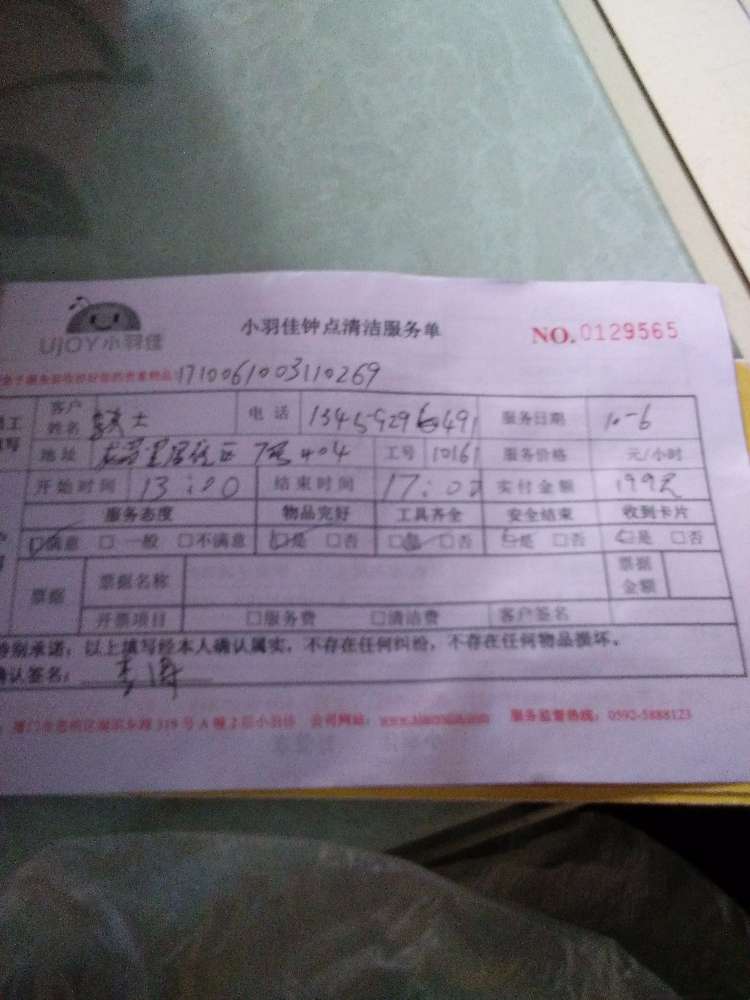 UJOY小羽佳
小羽佳钟点清洁服务单
NO.0129565
1710061003110269
客户姓名 士 电话 服务日期 10-6
地址 7号404 工号 10161 服务价格 元/小时
开始时间 13:00 结束时间 17:00 实付金额 199元
服务态度 物品完好 工具齐全 安全结束 收到卡片
满意 □一般 □不满意 □是 □否 □是 □否 □是 □否 □是 □否
票据 票据名称 票据金额
开票项目 □服务费 □清洁费 客户签名
特别承诺：以上填写经本人确认属实，不存在任何纠纷，不存在任何物品损坏。
确认签名：
319号A幢2层小羽佳 公司网站： 服务监督热线：0592-5888123